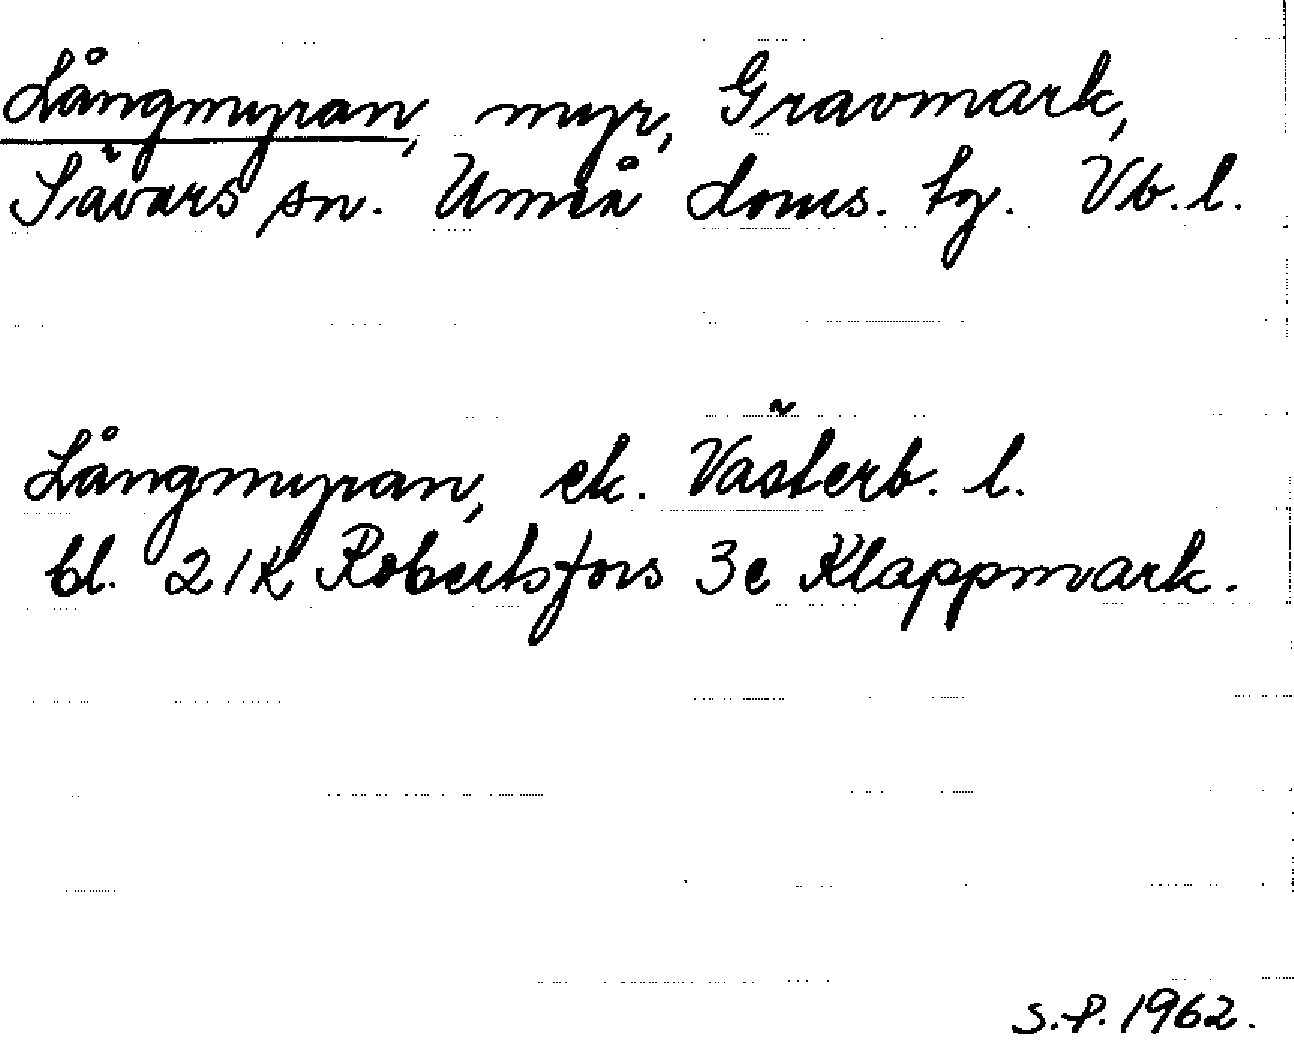 Långmyran, myr, Gravmark,
Sävars sn. Umeå doms. tg. Vb. l.
Långmyran, ek. Västerb. l.
bl. 21K Robertsfors 3e Klappmark.
S.P. 1962.